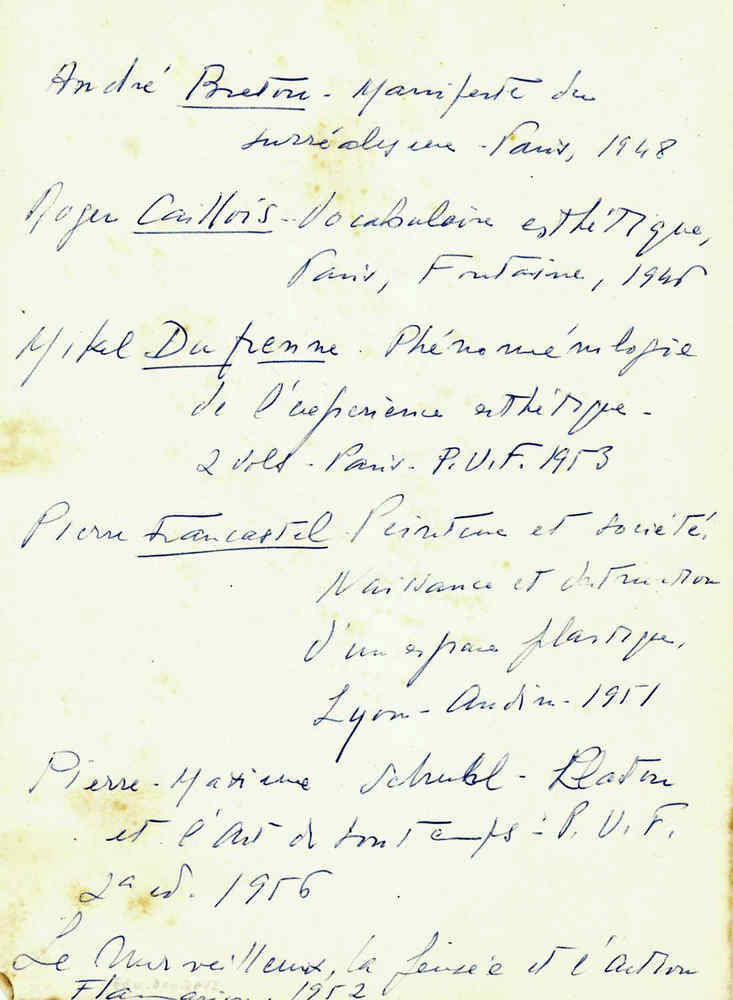 André Breton - Manifeste du
surréalisme - Paris, 1948
Roger Caillois - Vocabulaire esthétique,
Paris, Fontaine, 1946
Mikel Dufrenne. Phénoménologie
de l'expérience esthétique -
2 vols - Paris - P.U.F. 1953
Pierre Francastel Peinture et société.
Naissance et destruction
d'un espace plastique.
Lyon - Audin - 1951
Pierre-Maxime Schuhl - Platon
et l'Art de son temps - P. U. F.
2a ed. 1956
Le Merveilleux, la pensée et l'action
Flammarion. 1952